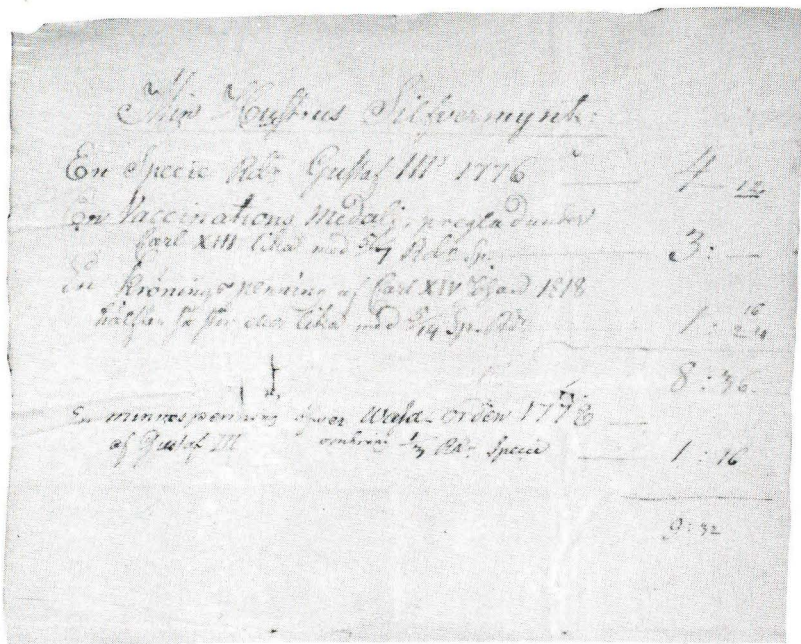 Min Hustrus Silfvermynt:
En Specie Rdr Gustaf III 1776 4 12
En Vaccinations Medalj, preglad under
Carl XIII lika med Rdr Sp. 3: —
En kröningspenning af Carl XIV Johan 1818
hälften så stor eller lika med 5/14 Sp. Rdr 1: 
8: 36.
En minnespenning öfver Wasa-orden 1778
af Gustaf III omkring 1/3 Rdr Specie 1: 16
9: 32